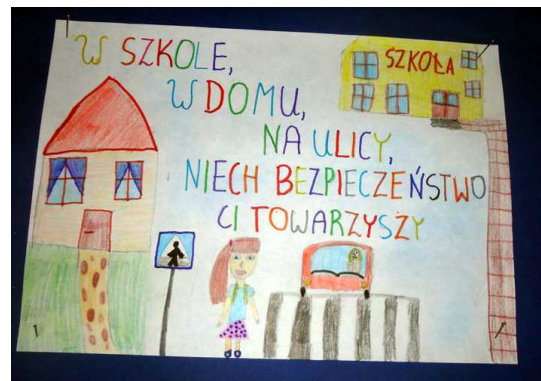 W SZKOLE,
W DOMU,
NA ULICY,
NIECH BEZPIECZEŃSTWO
CI TOWARZYSZY
SZKOŁA